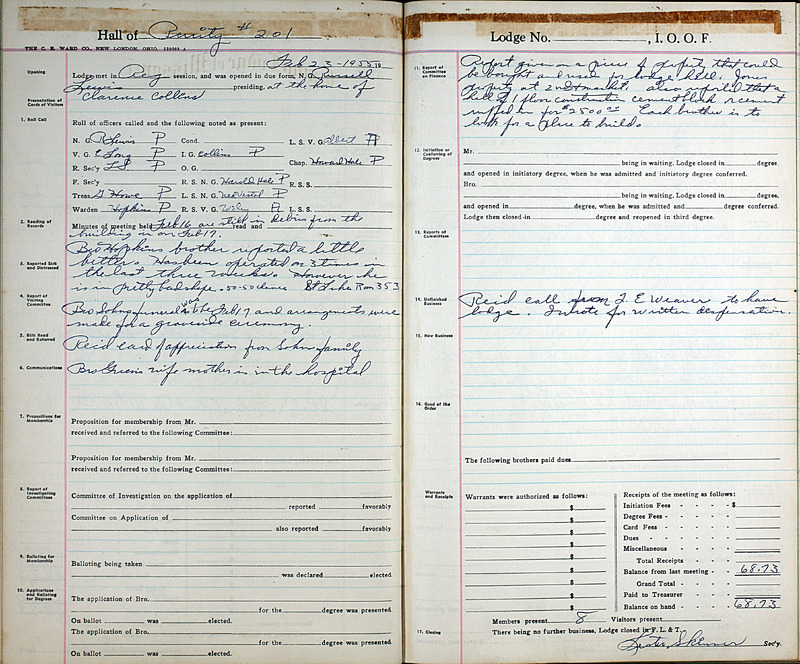 Hall of Purity # 201
THE C. E. WARD CO., NEW LONDON, OHIO.
Feb 23-1955 19
Opening
Lodge met in Reg session, and was opened in due form, N. G. Russell
Lewis presiding, at the home of
Presentation of Cards of Visitors
Clarence Collins
1. Roll Call
Roll of officers called and the following noted as present:
N. G. R Lewis P Cond. L. S. V. G. Albert A
V. G. E Long P I. G. Collins P Chap. Howard Hale P
R. Sec'y LS P O. G.
F. Sec'y P R. S. N. G. Harold Hale P R. S. S.
Treas. G Howe P L. S. N. G. Ned Vestal P
Warden Hopkins P R. S. V. G. Wiley A L. S. S.
2. Reading of Records
Minutes of meeting held Feb 16 are still in debris from the read and
building on Feb 17.
Bro Hopkins brother reported a little
3. Reported Sick and Distressed
better. Has been operated on 3 times in
the last three weeks. However he
is in pretty bad shape. 50-50 chance St Luke Rm 353
4. Report of Visiting Committee
Bro Sohns funeral was the Feb 17 and arrangements were
made for a graveside ceremony.
5. Bills Read and Referred
Recid card of appreciation from Sohn family
6. Communications
Bro Greens wife mother is in the hospital
7. Propositions for Membership
Proposition for membership from Mr.
received and referred to the following Committee:
Proposition for membership from Mr.
received and referred to the following Committee:
8. Report of Investigating Committees
Committee of Investigation on the application of
reported favorably
Committee on Application of
also reported favorably
9. Balloting for Membership
Balloting being taken
was declared elected
10. Applications and Balloting for Degrees
The application of Bro.
for the degree was presented.
On ballot was elected.
The application of Bro.
for the degree was presented
On ballot was elected.
Lodge No. , I. O. O. F.
11. Report of Committee on Finance
Report given on a piece of property that could
be bought and used for lodge hall. Jones
property at 2nd & market. also reported that a
hall of 1 floor construction cement block or cement
for $2500.00 Each brother is to
look for a place to build.
12. Initiation or Conferring of Degrees
Mr.
being in waiting. Lodge closed in degree,
and opened in initiatory degree, when he was admitted and initiatory degree conferred.
Bro.
being in waiting. Lodge closed in degree,
and opened in degree, when he was admitted and degree conferred.
Lodge then closed in degree and reopened in third degree.
13. Reports of Committees
14. Unfinished Business
Recid call from J. E Weaver to have
lodge. I wrote for written despensation.
15. New Business
16. Good of the Order
The following brothers paid dues
Warrants and Receipts
Warrants were authorized as follows:
$
$
$
$
$
$
$
$
$
Receipts of the meeting as follows:
Initiation Fees - - - - $
Degree Fees - - - - -
Card Fees - - - -
Dues - - - - - -
Miscellaneous - - - -
Total Receipts - -
Balance from last meeting - - 68.73
Grand Total - - -
Paid to Treasurer - -
Balance on hand - - - 68.73
Members present 8 Visitors present
17. Closing
There being no further business, Lodge closed in F. L. & T.
Lester Skinner Sec'y.